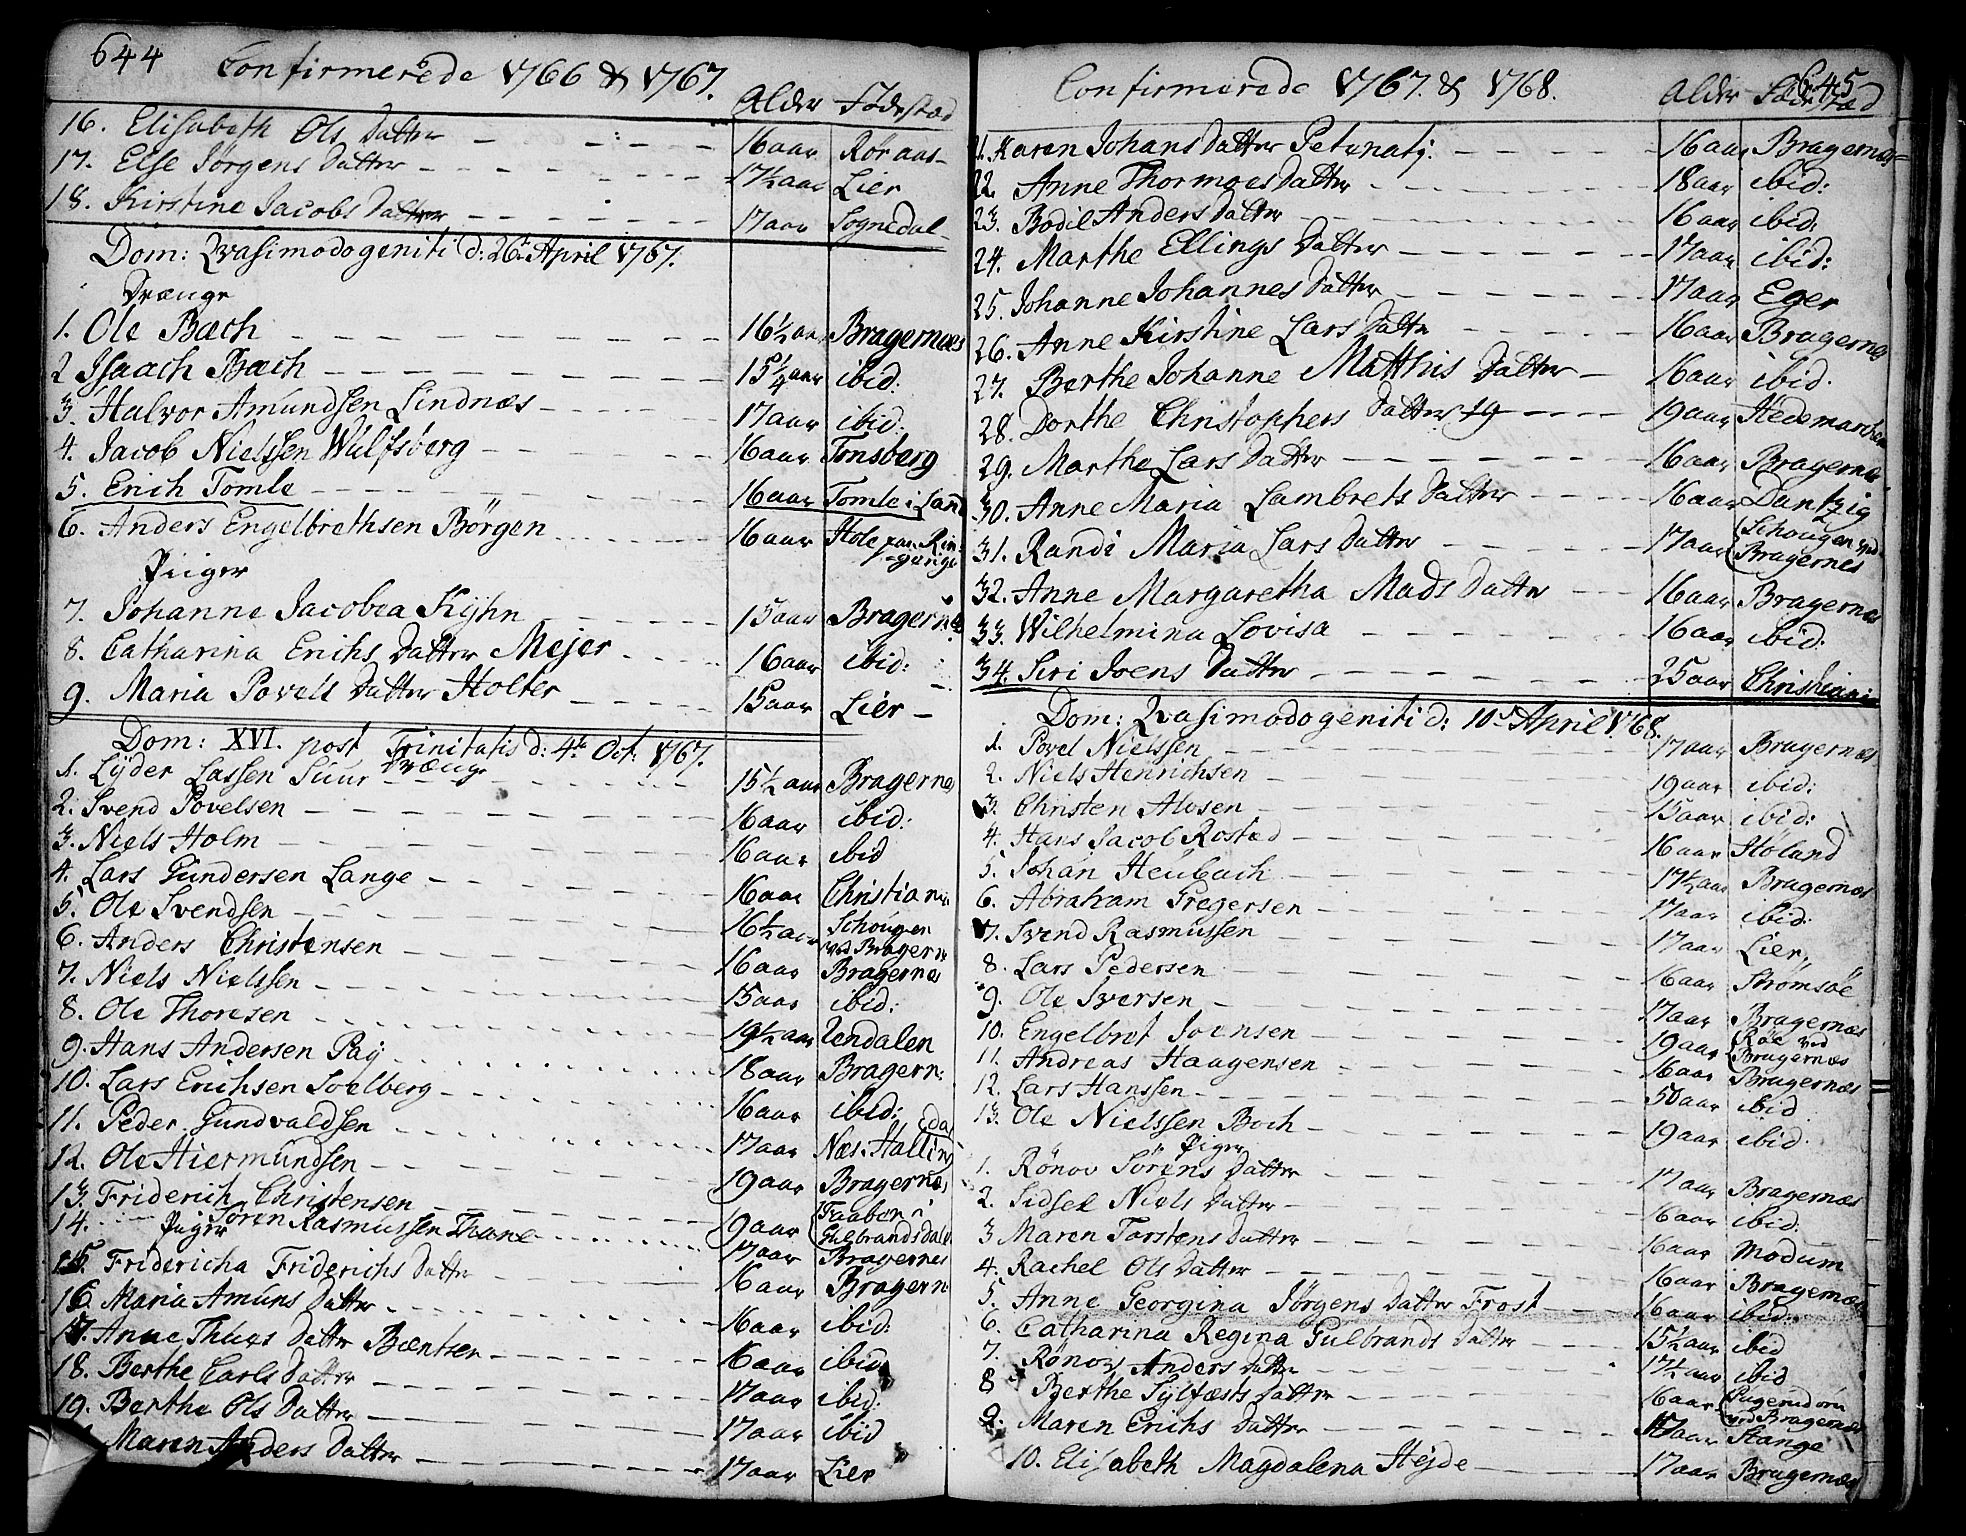 644
Confirmerede 1766 & 1767.
Alder Födestæd
16. Elisabeth Ols Datter 16 aar Röraas
17. Else Jörgens Datter 17½ aar Lier
18. Kirstine Jacobs Datter 17 aar Sognedal
Dom: Qvasimodogeniti d: 26 April 1767.
Drænge
1. Ole Bæch 16½ aar Bragernæs
2 Isaach Bæch 15¼ aar ibid:
3. Halvor Amundsen Lindnæs 17 aar ibid:
4. Jacob Nielssen Wulfsberg 16 aar Tonsberg
5. Erich Tomle 16 aar Tomle i Land
6. Anders Engelbrethsen Börgen 16 aar Hole paa Ringerige
Piiger
7. Johanne Jacobea Kyhn 15 aar Bragernæs
8. Catharina Erichs Datter Mejer 16 aar ibid:
9. Maria Povels Datter Holter 15 aar Lier
Dom: XVI. post Trinitatis d: 4de Oct: 1767.
Drænge
1. Lyder Lassen Suur 15½ aar Bragernes
2. Svend Povelsen 16 aar ibid:
3. Niels Holm 16 aar ibid
4. Lars Gundersen Lange 16 aar Christiania
5. Ole Svendsen 16½ aar Schougen ved Bragernes
6. Anders Christensen 16 aar Bragernæs
7. Niels Nielssen 15 aar ibid:
8. Ole Thoresen 19½ aar
9. Hans Andersen Pay 18 aar Bragern:
10. Lars Erichsen Soelberg 16 aar ibid:
11. Peder Gundvaldsen 17 aar Næs i Hallingdal
12. Ole Hiermundsen 19 aar Bragernæs
13. Friderich Christensen 19 aar Faaberg i Gulbrandsdal
14. Sören Rasmussen Thane 17 aar Bragernes
Piiger
15. Fridericha Friderichs Datter 16 aar Bragern
16. Maria Amuns Datter 16 aar ibid:
17. Anne Thurs Datter Bæntsen 16 aar ibid
18. Berthe Carls Datter 17 aar ibid:
19. Berthe Ols Datter 17 aar ibid
Maren Anders Datter 17 aar Lier
645
Confirmerede 1767. & 1768.
Alder Födestæd
21. Karen Johans Datter 16 aar Bragernæs
22. Anne Thormoes Datter 18 aar ibid:
23. Bodil Anders Datter 16 aar ibid:
24. Marthe Ellings Datter 17 aar ibid:
25. Johanne Johannes Datter 17 aar Eger
26. Anne Kirstine Lars Datter 16 aar Bragernes
27. Berthe Johanne Matthis Datter 16 aar ibid.
28. Dorthe Christophers Datter 19 19 aar Hedemarchen
29. Marthe Lars Datter 16 aar Bragernæs
30. Anne Maria Lambrets Datter 16 aar Dantzig
31. Randi Maria Lars Datter 17 aar Schougen ved Bragernes
32. Anne Margaretha Mads Datter 16 aar Bragernæs
33. Wilhelmina Lovisa 16 aar ibid:
34. Siri Joens Datter 25 aar Christiania
Dom: Qvasimodogeniti d: 10de April 1768.
1. Povel Nielssen 17 aar Bragernæs
2. Niels Henrichsen 19 aar ibid:
3. Christen Alvsen 15 aar ibid:
4. Hans Jacob Rostad 16 aar Höland
5. Johan Heubach 17½ aar Bragernæs
6. Abraham Gregersen 17 aar ibid:
7. Svend Rasmussen 17 aar Lier
8. Lars Pedersen 16 aar Strömsöe
9. Ole Iversen 17 aar Bragernæs
10. Engelbret Joensen 19 aar Röe ved Bragernæs
11. Andreas Haagensen 16 aar Bragernæs
12. Lars Hanssen 50 aar ibid
13. Ole Nielssen Boch 19 aar ibid.
Piger
1. Rönov Sörens Datter 17 aar Bragernæs
2. Sidsel Niels Datter 16 aar ibid:
3 Maren Torstens Datter 16 aar Modum
4. Rachel Ols Datter 16 aar Bragernæs
5. Anne Georgina Jörgens Datter Frost 16 aar ibid:
6. Catharina Regina Gulbrands Datter 15½ aar ibid
7. Rönov Anders Datter 17½ aar ibid
8 Berthe Sylfæsts Datter 16 aar ved Bragernæs
9. Maren Erichs Datter 17 aar Stange
10. Elisabeth Magdalena Hejde 17 aar Bragernæs